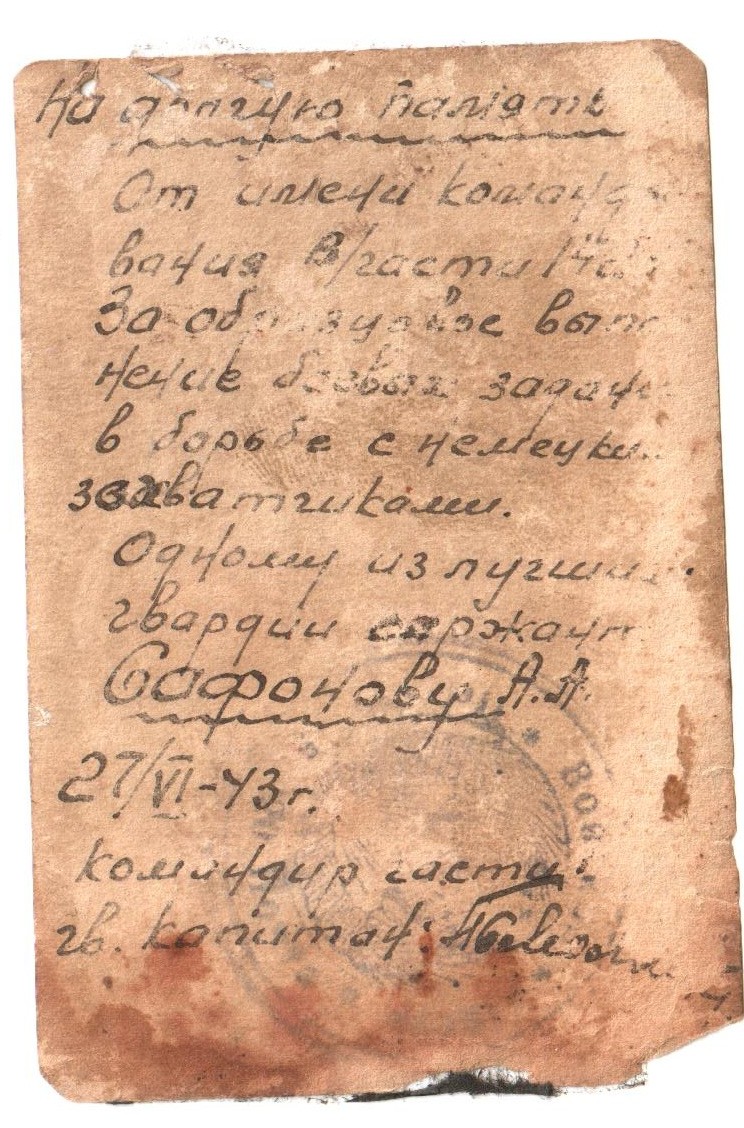 На долгую память
От имени команд
вания в/части
За образцовое вып
нение боевых задач
в борьбе с немецки
захватчиками.
Одному из лучших
гвардии сержант
Сафонову А.А.
27/VI-43г.
командир части
гв. капитан